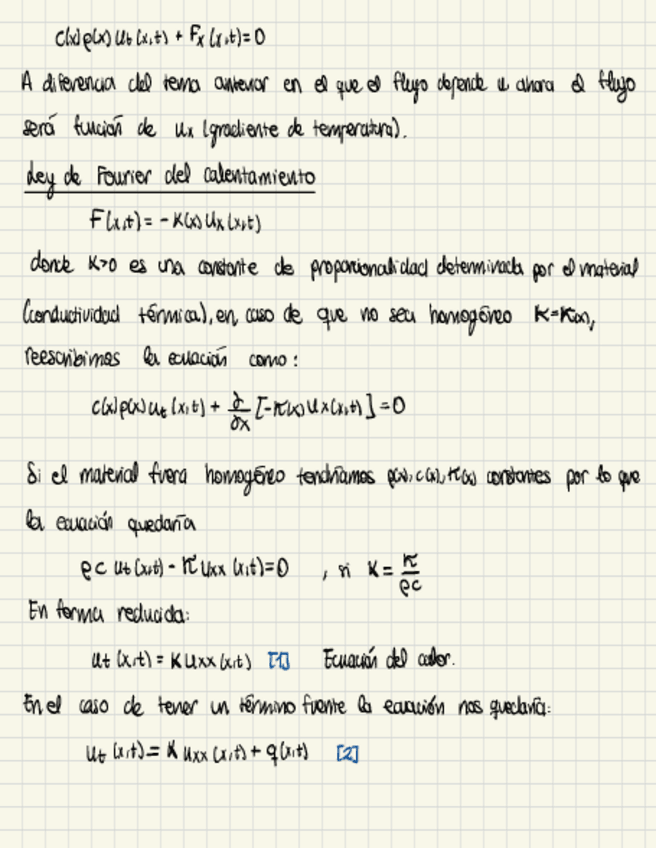 c(x)ρ(x) u_t(x,t) + F_x(x,t)=0
A diferencia del tema anterior en el que el flujo depende u ahora el flujo
será función de u_x (gradiente de temperatura).
Ley de Fourier del calentamiento
F(x,t) = -K(x) u_x(x,t)
donde K>0 es una constante de proporcionalidad determinada por el material
(conductividad térmica), en caso de que no sea homogéneo K=K(x),
reescribimos la ecuación como:
c(x)ρ(x)u_t(x,t) + ∂/∂x [-K(x)u_x(x,t)] =0
Si el material fuera homogéneo tendríamos ρ(x), c(x), K(x) constantes por lo que
la ecuación quedaría
ρc u_t(x,t) - K u_xx(x,t)=0 , si K = K/ρc
En forma reducida:
u_t(x,t) = K u_xx(x,t) [1] Ecuación del calor.
En el caso de tener un término fuente la ecuación nos quedaría:
u_t(x,t) = K u_xx(x,t) + q(x,t) [2]